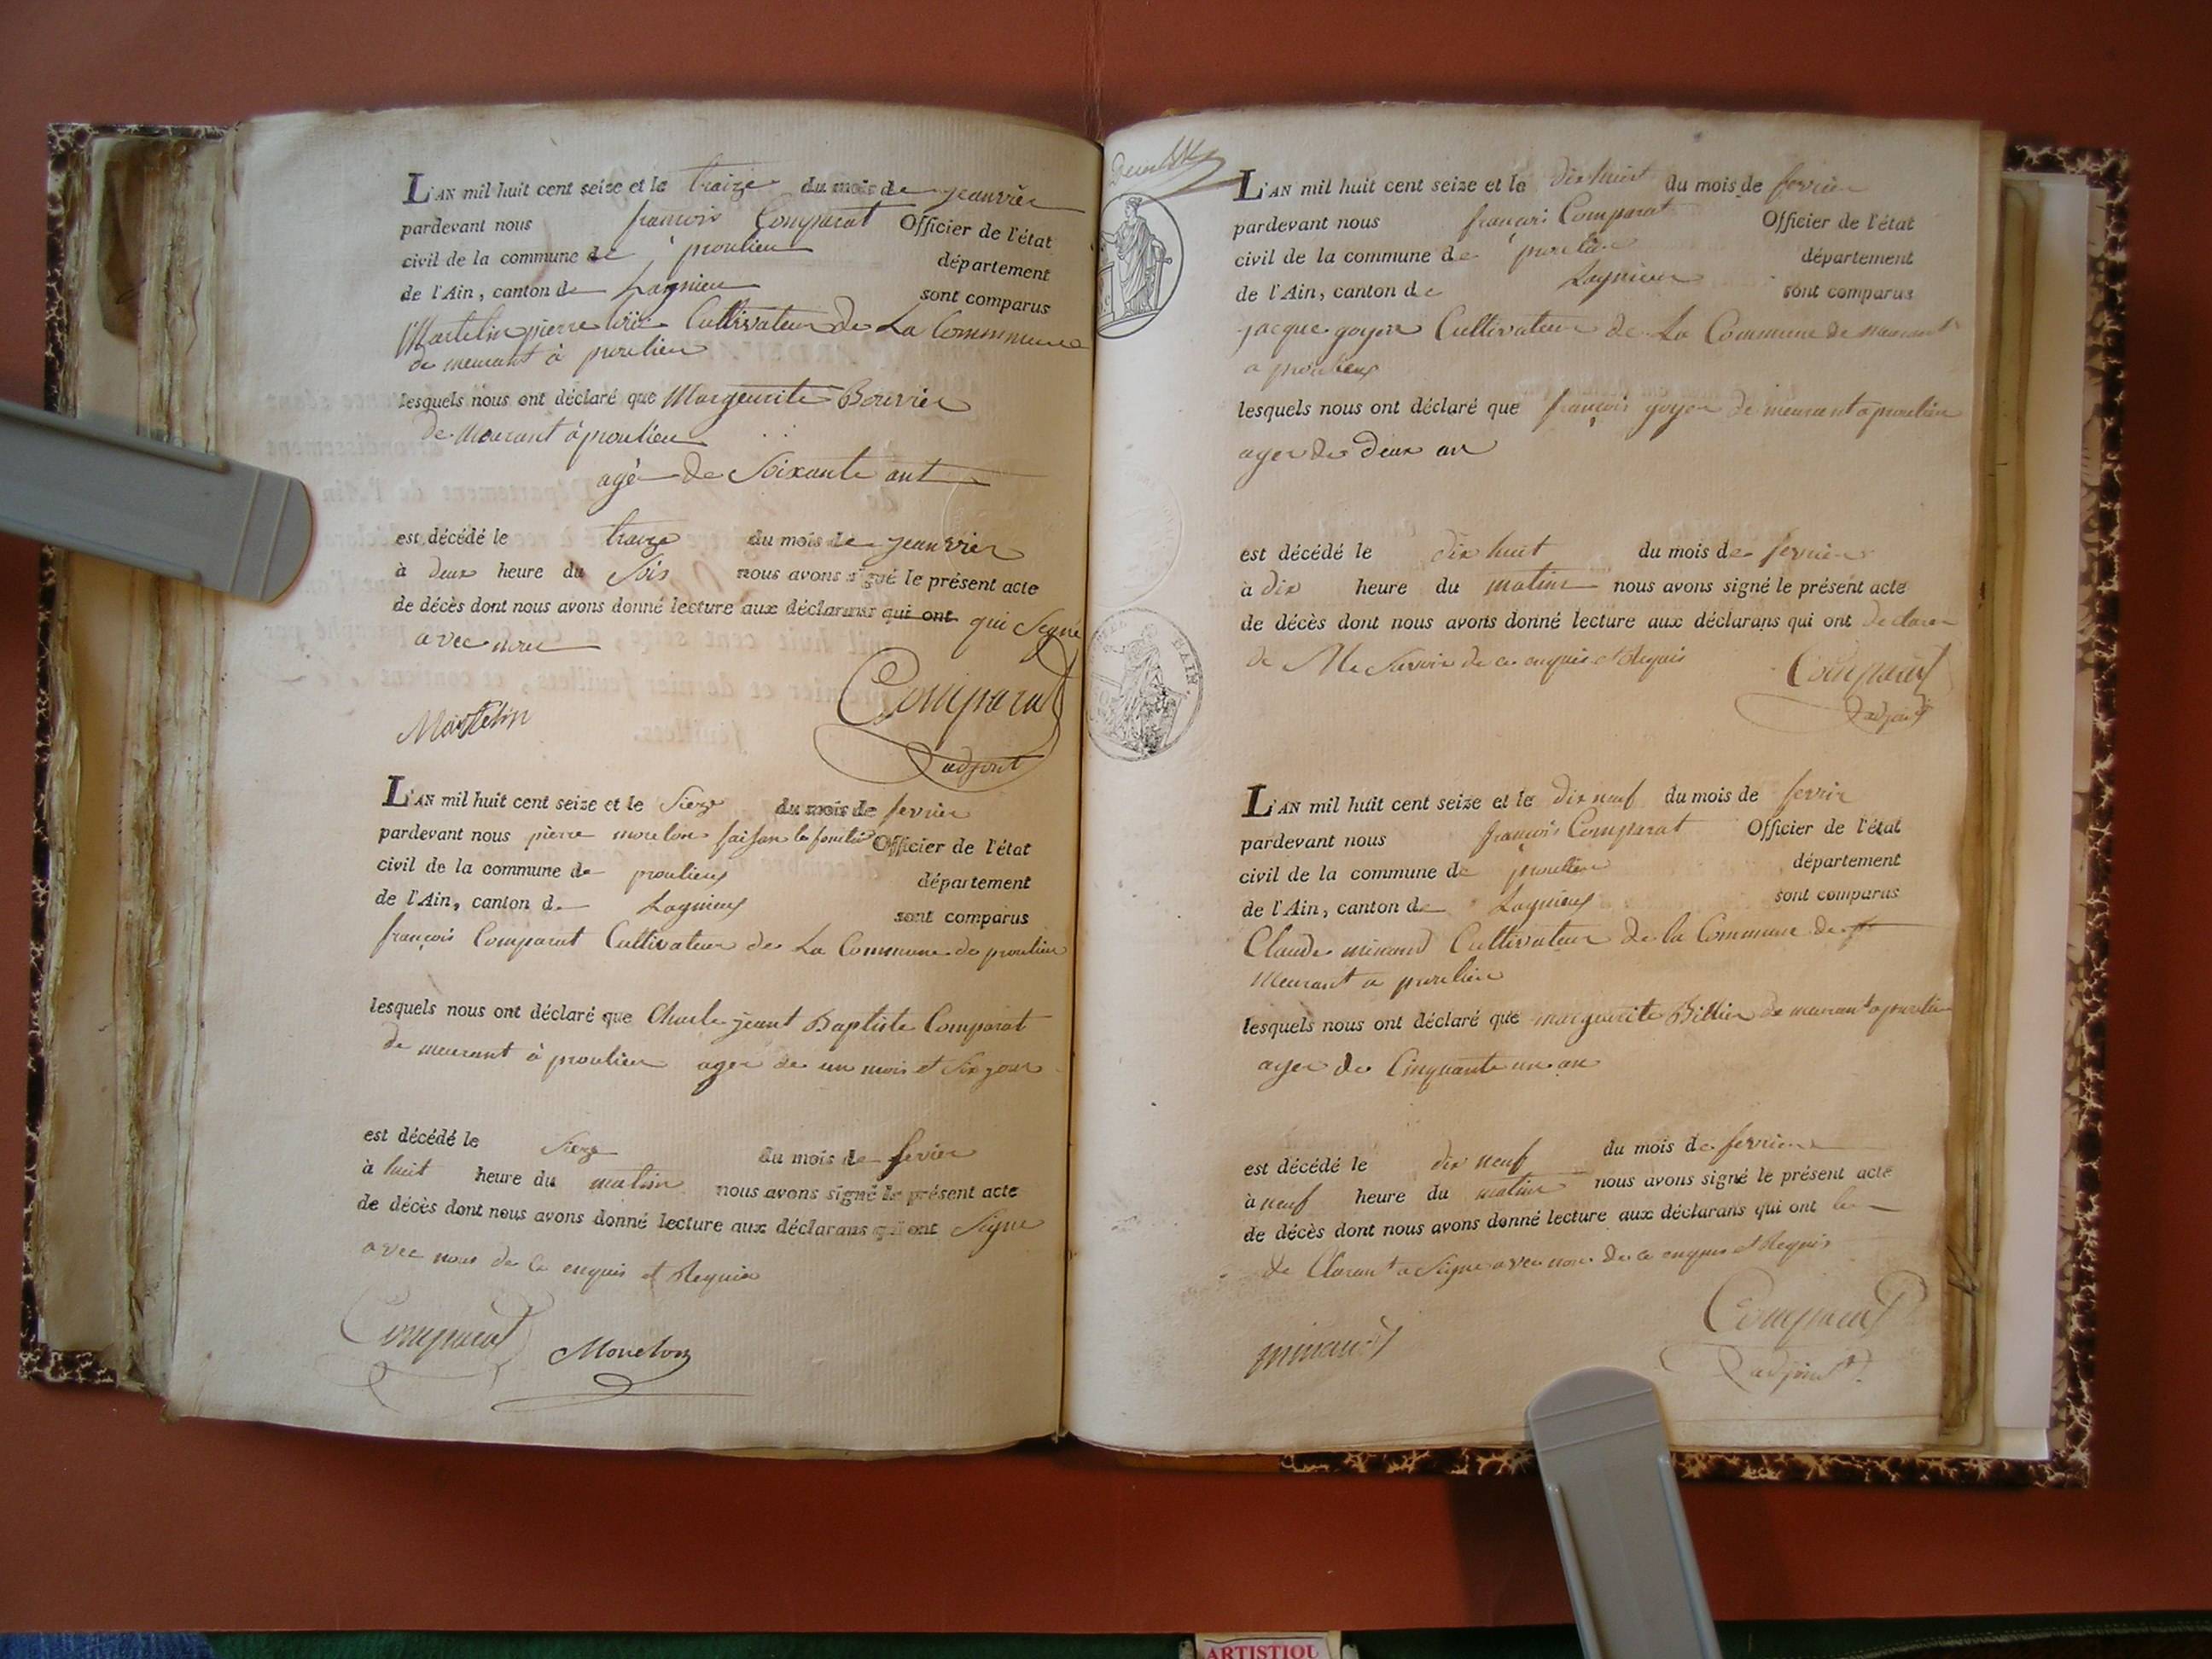 L'AN mil huit cent seize et le traize du mois de jeanvier
pardevant nous francois Comparat Officier de l'état
civil de la commune de proulieu département
de l'Ain, canton de Lagnieu sont comparus
Martelin pierre Cultivateur de La Commune
de meurant à proulieu
lesquels nous ont déclaré que Margeurite Bouvier
de Meurant à proulieu
agé de Soixante ant
est décédé le traize du mois de jeanvier
à deux heure du Sois nous avons signé le présent acte
de décès dont nous avons donné lecture aux déclarans qui ont qui Signé
avec nous
Comparat
Martelin
adjoint
L'AN mil huit cent seize et le Sieze du mois de fevrier
pardevant nous pierre moreton faisan les Officier de l'état
civil de la commune de proulieux département
de l'Ain, canton de Lagnieux sont comparus
françois Comparat Cultivateur de La Commune de proulieu
lesquels nous ont déclaré que Charle jeant Baptiste Comparat
de meurant à proulieu ager de un mois et Six jour
est décédé le Sieze du mois de fevier
à huit heure du matin nous avons signé le présent acte
de décès dont nous avons donné lecture aux déclarans qui ont Signe
avec nous de Ce enquis et Requis
Comparat Moreton
L'AN mil huit cent seize et le dix huit du mois de fevrier
pardevant nous françois Comparat Officier de l'état
civil de la commune de proulieu département
de l'Ain, canton de Lagnieu sont comparus
jacque goyon Cultivateur de La Commune de meurant
a proulieux
lesquels nous ont déclaré que françois goyon de meurant a proulieu
ager de deux an
est décédé le dix huit du mois de fevrier
à dix heure du matin nous avons signé le présent acte
de décès dont nous avons donné lecture aux déclarans qui ont declarer
de Ne Savoir de ce enquis et Requis
Comparat
adjoint
L'AN mil huit cent seize et le dix neuf du mois de fevrir
pardevant nous françois Comparat Officier de l'état
civil de la commune de proulieu département
de l'Ain, canton de Lagnieux sont comparus
Claude minand Cultivateur de la Commune de
Meurant a proulieu
lesquels nous ont déclaré que marguerite Billier de meurant a proulieu
ager de Cinquante un an
est décédé le dix neuf du mois de fevrier
à neuf heure du matin nous avons signé le présent acte
de décès dont nous avons donné lecture aux déclarans qui ont le
de Clarant a Signe avec nous de ce enquis et Requis
Comparat
minand
adjoint
ARTISTIQU